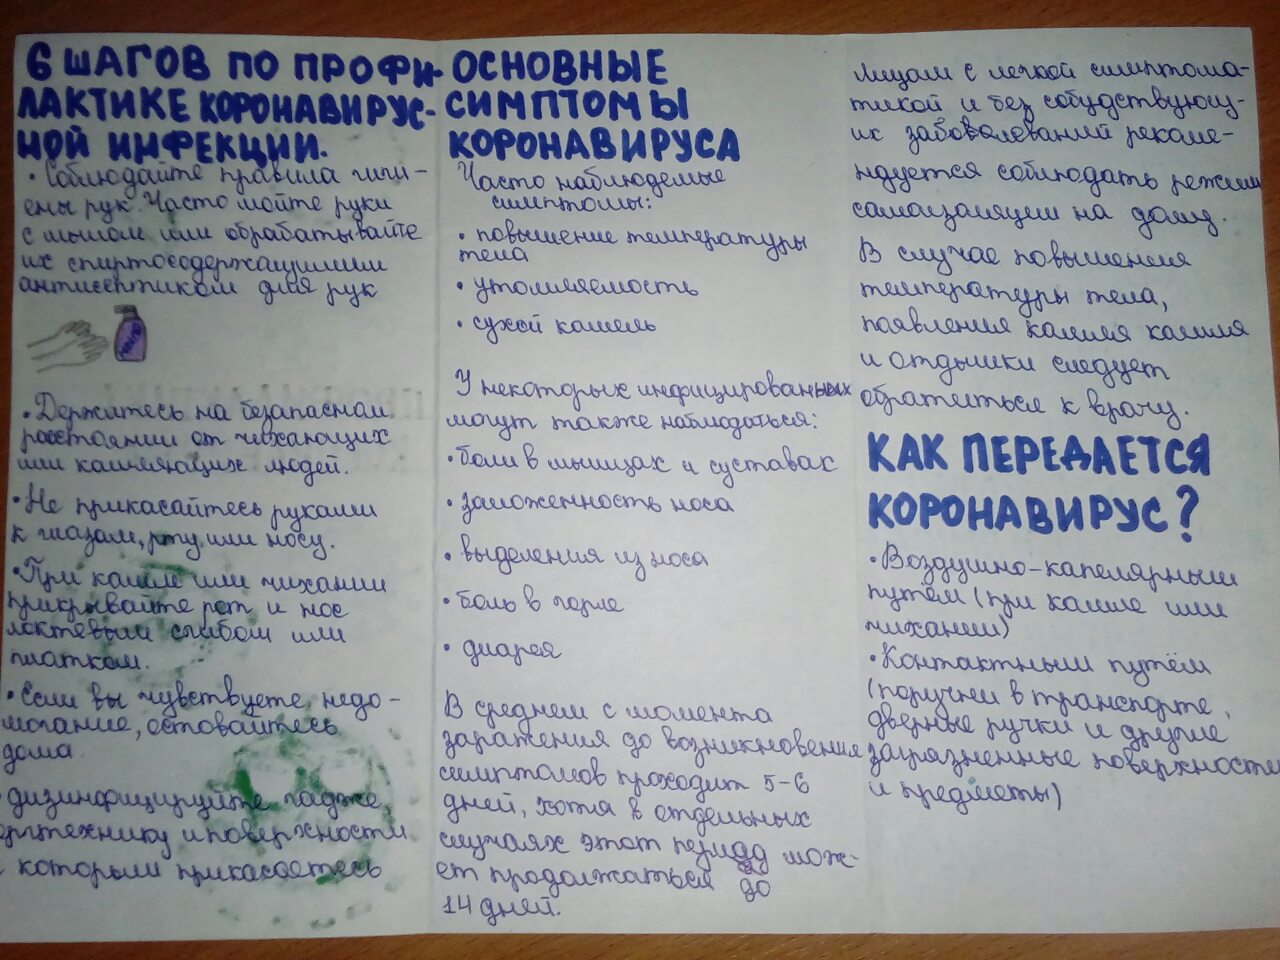 6 ШАГОВ ПО ПРОФИ-
ЛАКТИКЕ КОРОНАВИРУС-
НОЙ ИНФЕКЦИИ.
• Соблюдайте правила гиги-
ены рук. Часто мойте руки
с мылом или обрабатывайте
их спиртосодержащимим
антисептиком для рук
• Держитесь на безапасном
расстоянии от чихающих
или кашляющих людей.
• Не прикасайтесь руками
к глазам, рту или носу.
• При кашле или чихании
прикрывайте рот и нос
локтевым сгибом или
платком.
• Если вы чувствуете недо-
могание, оставайтесь
дома
• дизинфицируйте гаджеты,
оргтехнику и поверхности
к которым прикасаетесь
ОСНОВНЫЕ
СИМПТОМЫ
КОРОНАВИРУСА
Часто наблюдемые
симптомы:
• повышение температуры
тела
• утомляемость
• сухой кашель
У некоторых инфицированных
могут также наблюдаться:
• боли в мышцах и суставах
• заложенность носа
• выделения из носа
• боль в горле
• диарея
В среднем с момента
заражения до возникновения
симптомов проходит 5-6
дней, хотя в отдельных
случаях этот период мож-
ет продолжаться до
14 дней.
Лицам с легкой симптома-
тикой и без собудствующ-
их забоволеваний рекоме-
ндуется соблюдать режим
самоизоляции на дому.
В случае повышения
температуры тела,
появления кашля кашля
и отдышки следует
обратиться к врачу.
КАК ПЕРЕДАЕТСЯ
КОРОНАВИРУС?
• Воздушно-капелярным
путём (при кашле или
чихании)
• Контактным путём
(поручни в транспорте,
дверные ручки и другие
загрязненные поверхности
и предметы)